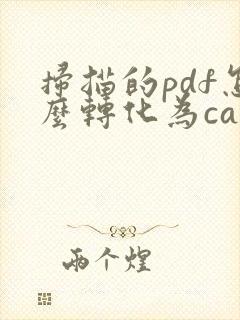 掃描的pdf怎
麼轉化為ca
兩个煌